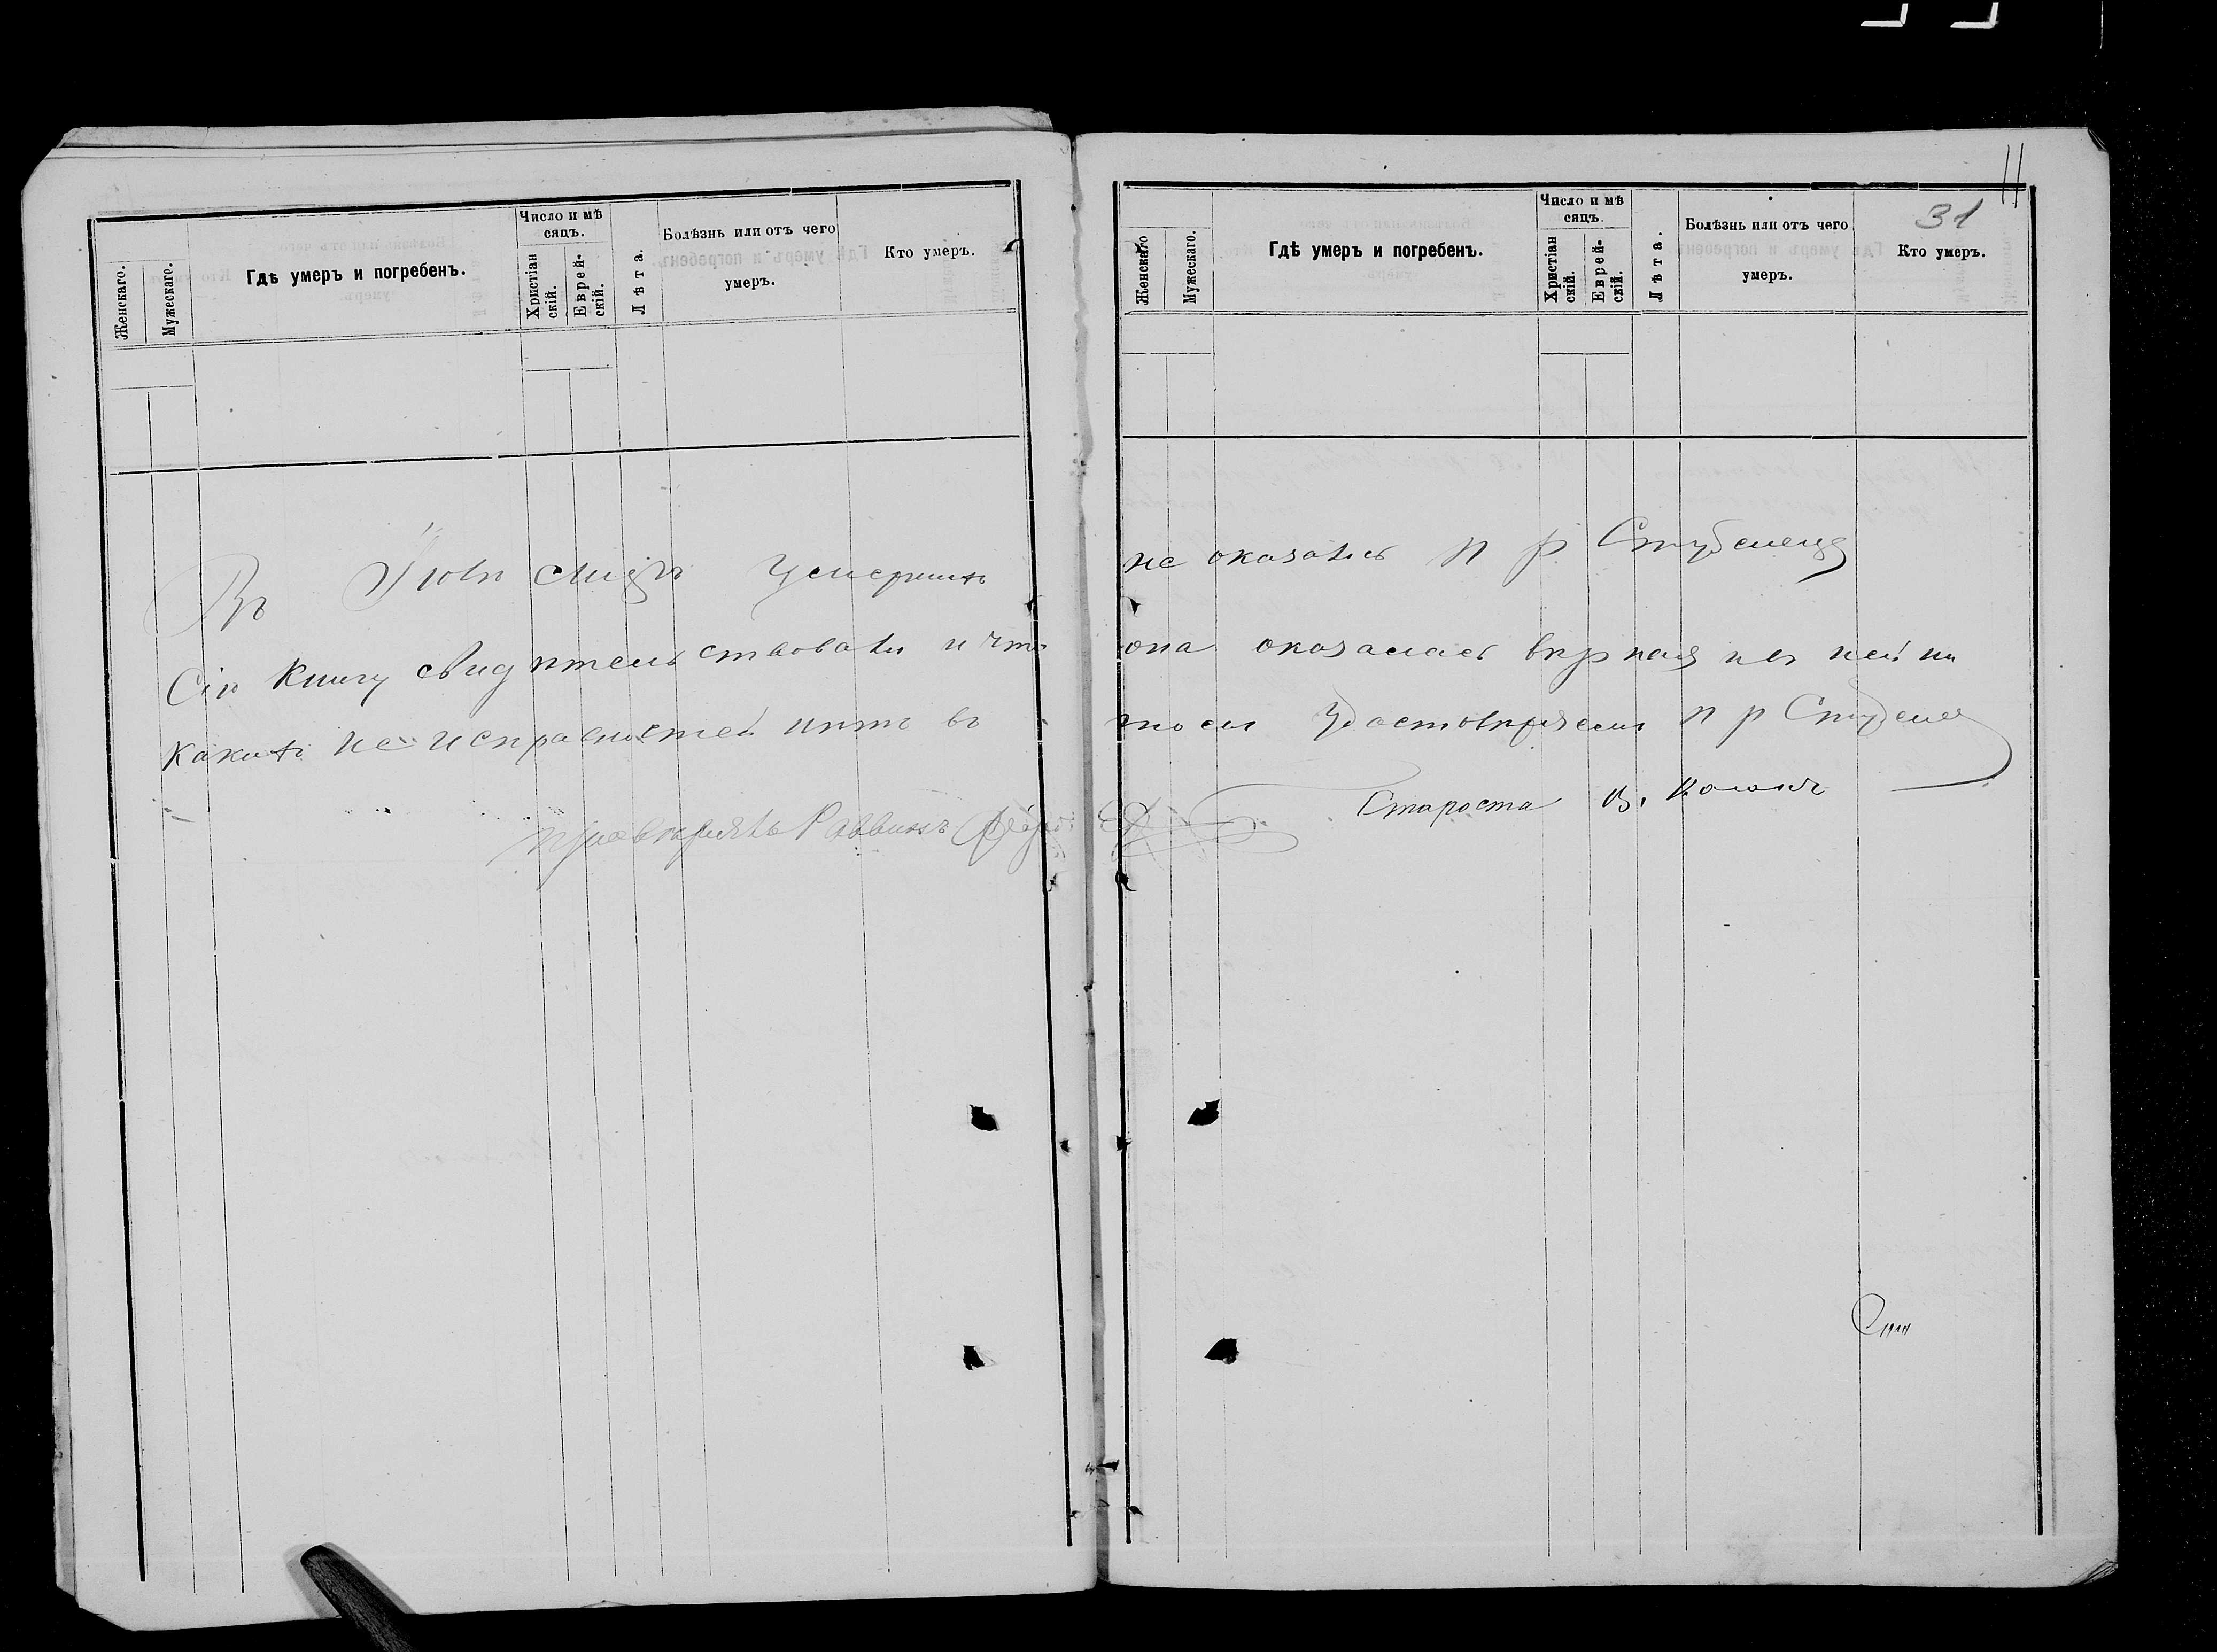 Женскаго.
Мужескаго.
Гдѣ умеръ и погребенъ.
Число и мѣ
сяцъ.
Христіан
скій.
Еврей-
скій.
Лѣта.
Болѣзнь или отъ чего
умеръ.
Кто умеръ.
Въ Іюлѣ умершихъ
Сію книгу свидѣтельствовали и что
какихъ неисправностей нѣтъ въ
Раввинъ
11
31
Женскаго
Мужескаго.
Гдѣ умеръ и погребенъ.
Число и мѣ
сяцъ.
Христіан
скій.
Еврей-
скій.
Лѣта.
Болѣзнь или отъ чего
умеръ.
Кто умеръ.
не оказались п р
она оказалась вѣрная и въ ней ни
томъ удостовѣряемъ п р
Староста